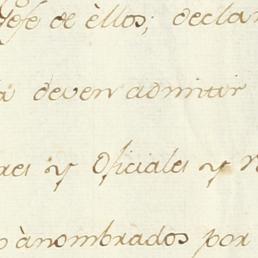 Gefe de èllos; decla
deven admitir
res y Oficiales y
o ànombrados por